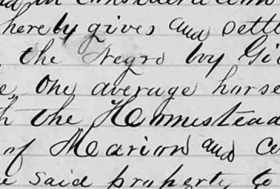 hereby gives and sett
the Negro boy G
one average horse
the Homestead
of Marion and
said property